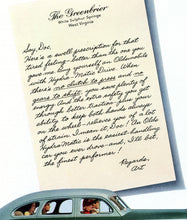 The Greenbrier
White Sulphur Springs
West Virginia
Say, Doc,
Here's a swell prescription for that
tired feeling - better than the one you
gave me. Buy yourself an Oldsmobile
with Hydra-Matic Drive. When
there's no clutch and no
gears to shift, you save plenty of
energy. And the extra safety you get
through better traction, plus your
ability to keep both hands always
on the wheel - relieves you of a lot
of strain. I mean it, Doc! An Olds
Hydra-Matic is the easiest-handling
car you ever drove - and, I'll bet,
the finest performer!
Regards,
Art